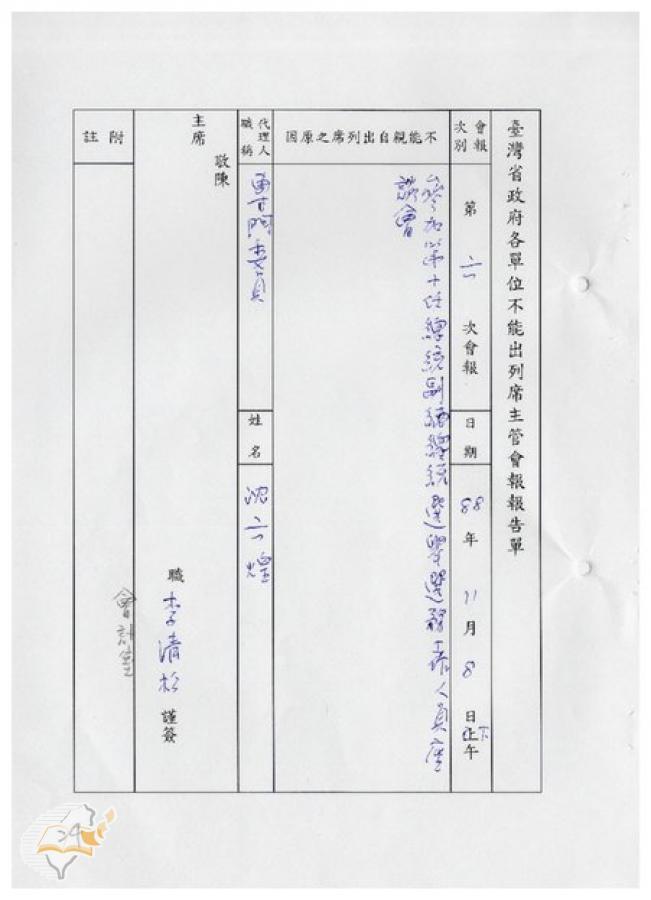 臺灣省政府各單位不能出列席主管會報報告單
會報次別
第 六 次會報
日期
88年 11月 8日下午
不能親自出列席之原因
參加第十任總統副總統選舉選務工作人員座
談會
代理人職稱
專門委員
姓名
沈六煌
敬陳
主席
職 李清松 謹簽
會計室
附註